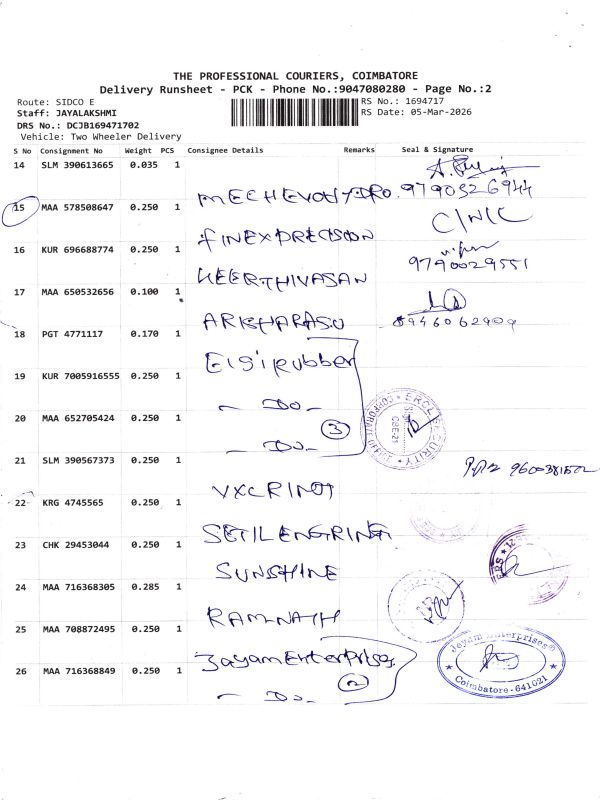 THE PROFESSIONAL COURIERS, COIMBATORE
Delivery Runsheet - PCK - Phone No.:9047080280 - Page No.:2
Route: SIDCO E
RS No.: 1694717
Staff: JAYALAKSHMI
RS Date: 05-Mar-2026
DRS No.: DCJB169471702
Vehicle: Two Wheeler Delivery
S No Consignment No Weight PCS Consignee Details Remarks Seal & Signature
14 SLM 390613665 0.035 1
9790326944
15 MAA 578508647 0.250 1
FINEXPRECISION
16 KUR 696688774 0.250 1
9790029551
KEERTHIVASAN
17 MAA 650532656 0.100 1
8946062909
18 PGT 4771117 0.170 1
Elgirubber
19 KUR 7005916555 0.250 1
- Do -
20 MAA 652705424 0.250 1
- Do - 3
21 SLM 390567373 0.250 1
22 KRG 4745565 0.250 1
23 CHK 29453044 0.250 1
SUNSHINE
24 MAA 716368305 0.285 1
RAMNATH
25 MAA 708872495 0.250 1
Jayam Enterprises
Jayam Enterprises
26 MAA 716368849 0.250 1
- Do - 2
Coimbatore-641021